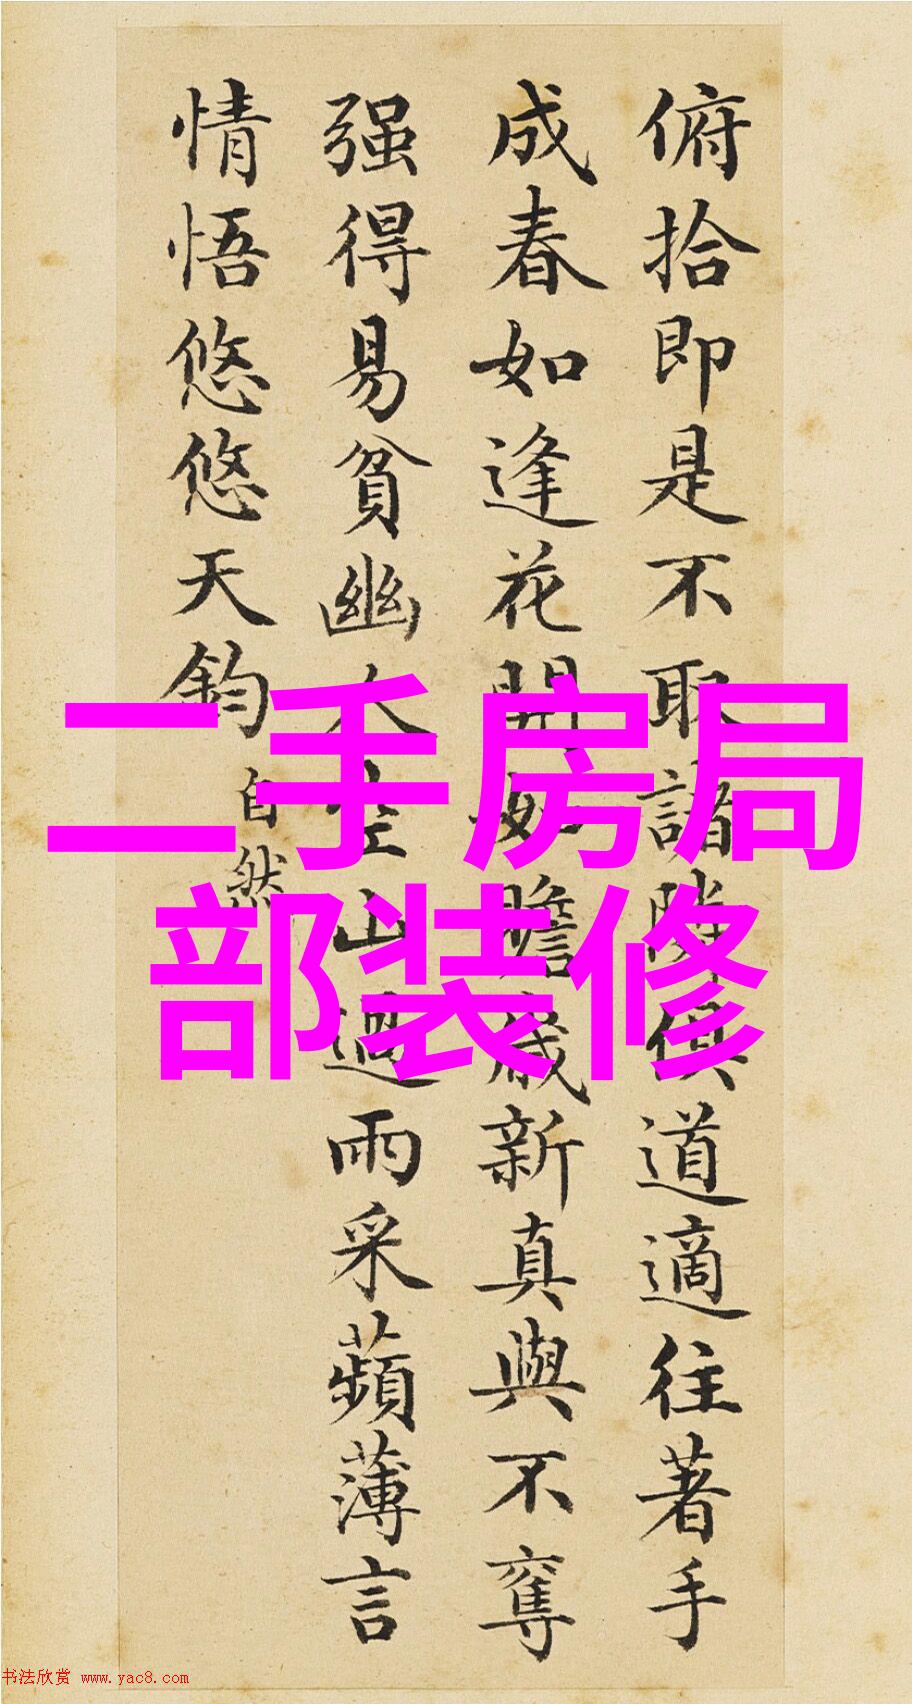 俯拾即是不取諸隣俱道適往著手
成春如逢花開如瞻歲新真與不奪
强得易貧幽人空山過雨采蘋薄言
情悟悠悠天鈞
自然
二手房局
部装修
书法欣赏 www.yac8.com